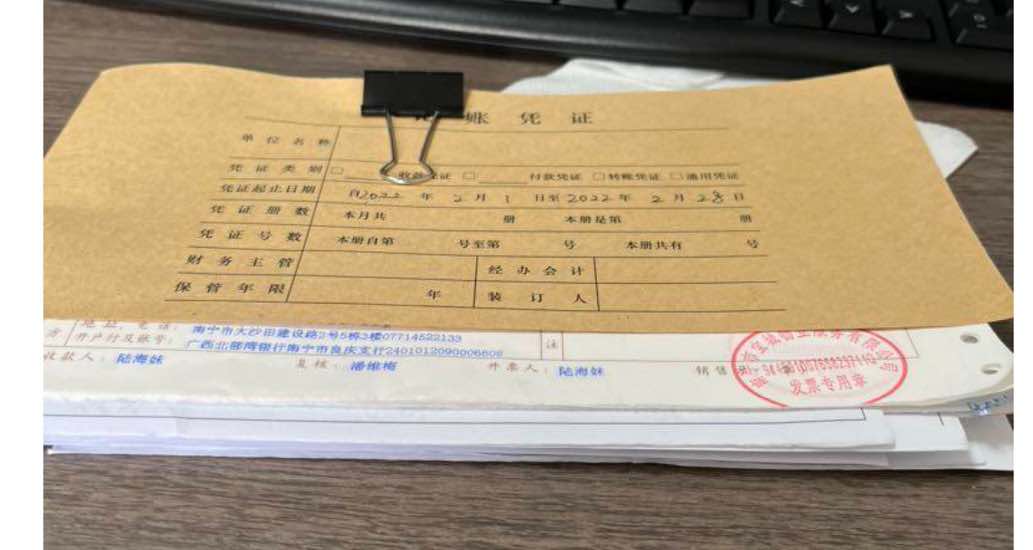 账 凭 证
单 位 名 称
凭 证 类 别 □ 收款凭证 □ 付款凭证 □转账凭证 □通用凭证
凭证起止日期 自2022 年 2 月 1 日至 2022 年 2 月 28 日
凭 证 册 数 本月共 册 本册是第 册
凭 证 号 数 本册自第 号至第 号 本册共有 号
财 务 主 管 经 办 会 计
保 管 年 限 年 装 订 人
方 地 址、电 话: 南宁市大沙田建设路2号5栋3楼07714522133 注
开户行及账号: 广西北部湾银行南宁市良庆支行2401012090006608
收款人: 陆海妹 复核: 潘维梅 开票人: 陆海妹 销售
发票专用章